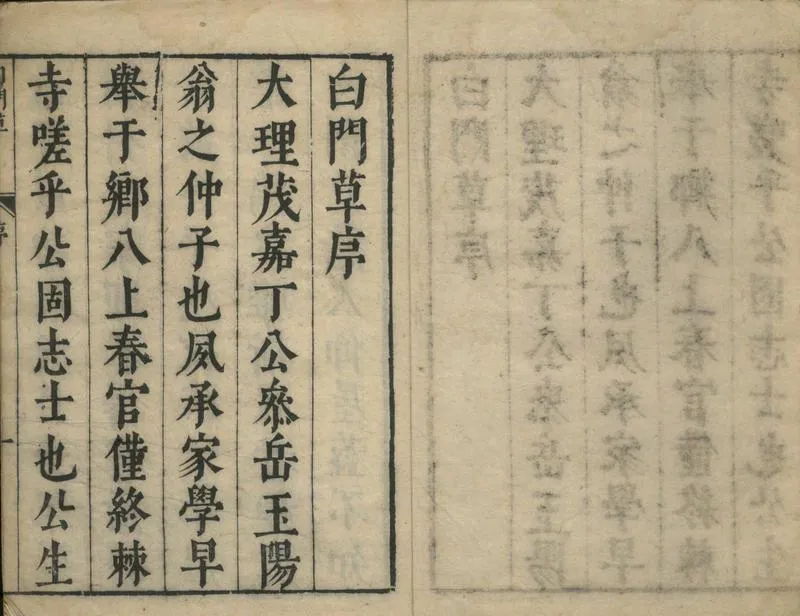 白門草序
大理茂嘉丁公叅岳玉陽
翁之仲子也夙承家學早
舉于鄉八上春官僅終棘
寺嗟乎公固志士也公生
序
一